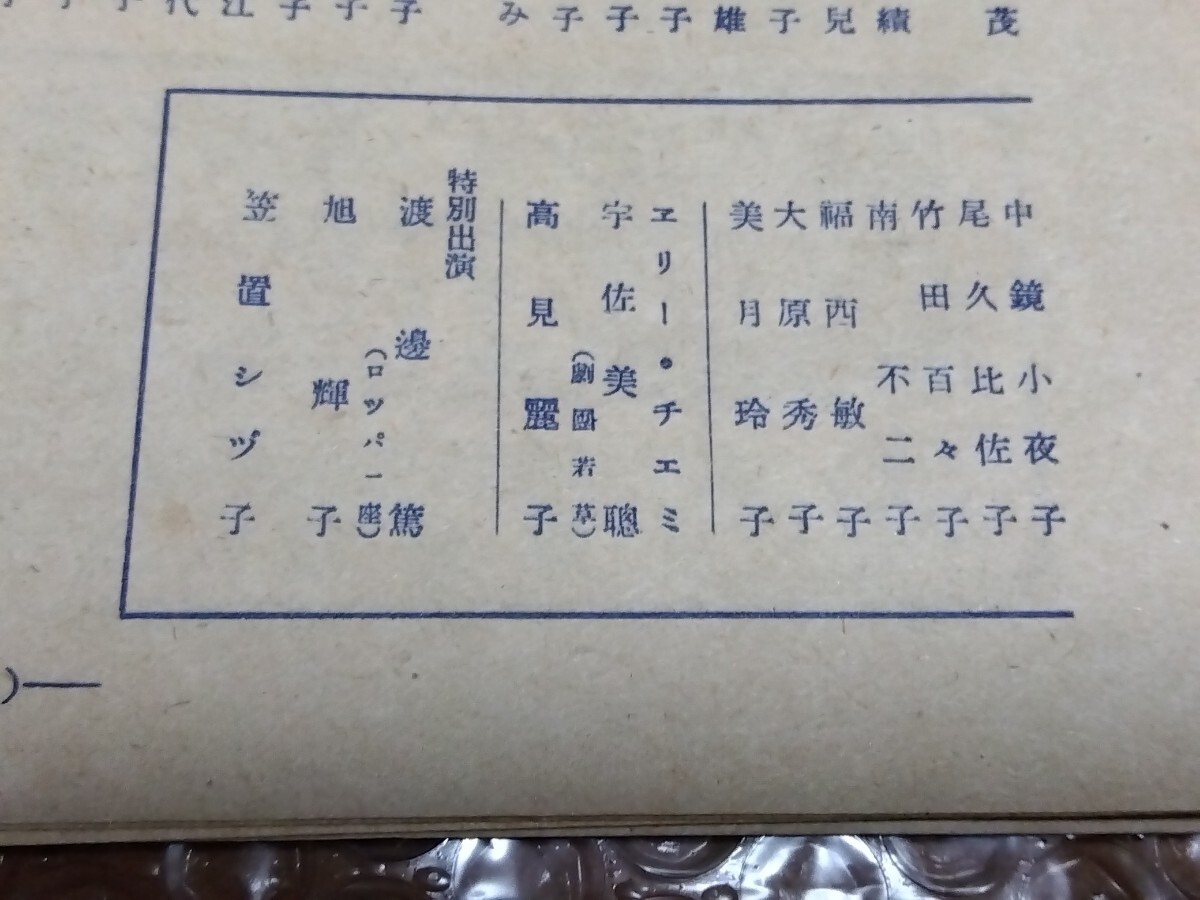 茂
續
兒
雄
子
子
子
子
み
子
子
子
江
代
中鏡小夜子
尾久比佐子
竹田百々子
南不二子
福西敏子
大原秀子
美月玲子
ヱリー・チエミ
宇佐美聰
(劇團若草)
高見麗子
特別出演
渡邊篤
(ロツパー座)
旭輝子
笠置シヅ子
)—